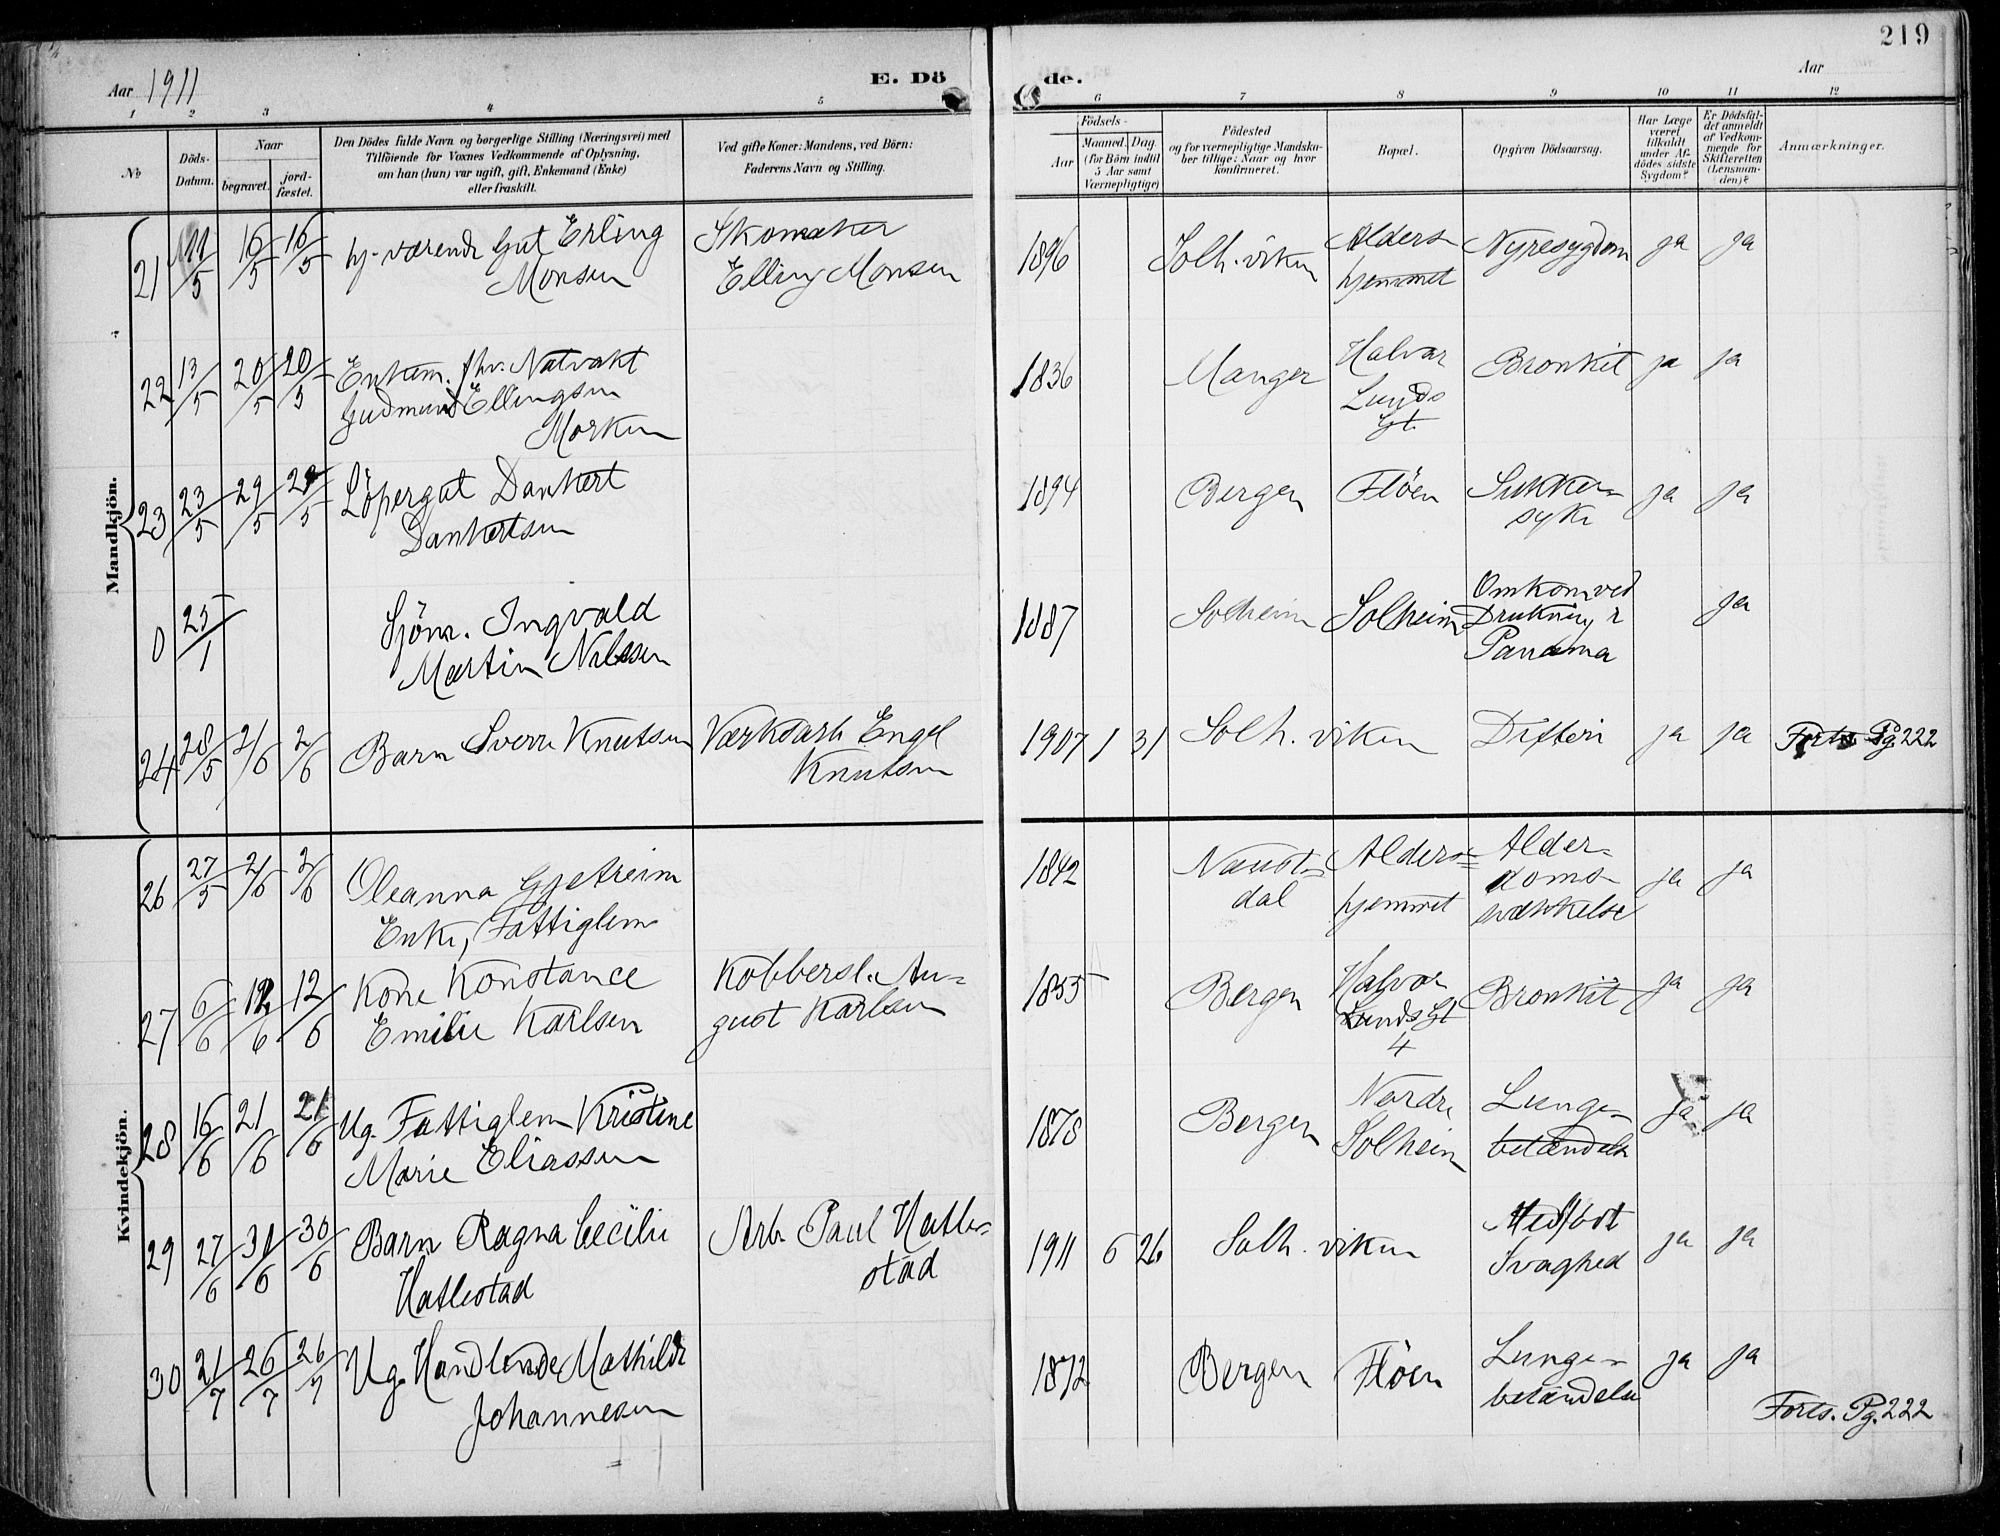 219
Aar 1911
E. Dö
de.
Aar
1 2 3 4 5 6 7 8 9 10 11 12
No
Döds-
Datum.
Naar
begravet.
jord-
fæstet.
Den Dödes fulde Navn og borgerlige Stilling (Næringsvei) med
Tilföiende for Voxnes Vedkommende af Oplysning,
om han (hun) var ugift, gift, Enkemand (Enke)
eller fraskilt.
Ved gifte Koner: Mandens, ved Börn:
Faderens Navn og Stilling.
Födsels-
Aar
Maaned. Dag.
(for Börn indtil
5 Aar samt
Værnepligtige)
Födested
og for værnepligtige Mandska-
ber tillige: Naar og hvor
konfirmeret.
Bopæl.
Opgiven Dödsaarsag.
Har Læge
været
tilkaldt
under Af-
dödes sidste
Sygdom?
Er Dödsfal-
det anmeldt
af Vedkom-
mende for
Skifteretten
(Lensman-
den)?
Anmærkninger.
Mandkjön.
21 11/5 16/5 16/5 hj-værende Gut Erling
Monsen
Skomaker
Elling Monsen
1896 Solh.viken Alders
hjemmet
Nyresygdom ja ja
22 13/5 20/5 20/5 Enkem. fhv. Natvakt
Gudmund Ellingsen
Morken
1836 Manger Halvar
Lunds
Gt.
Bronkit ja ja
23 23/5 29/5 29/5 Löpergut Dankert
Dankertsen
1894 Bergen Flöen Sukker-
syke
ja ja
0 25/1 Sjöm. Ingvald
Martin Nilssen
1887 Solheim Solheim Omkom ved
Drukning i
Panama
ja
24 28/5 2/6 2/6 Barn Sverre Knutsen Værkdarb Engel
Knutsen
1907 1 31 Solh. viken Difteri ja ja Forts Pg. 222
Kvindekjön.
26 27/5 2/6 2/6 Oleanna Gjetreim
Enke, Fattiglem
1842 Naust-
dal
Alders-
hjemmet
Alder-
doms-
svækkelse
ja ja
27 6/6 12/6 12/6 Kone Konstance
Emilie Karlsen
Kobbersl. Au-
gust Karlsen
1855 Bergen Halvor
Lunds Gt
4
Bronkit ja ja
28 16/6 21/6 21/6 Ug. Fattiglem Kristine
Marie Eliassen
1878 Bergen Nordre
Solheim
Lunge-
betændelse
ja ja
29 27/6 30/6 30/6 Barn Ragna Cecilie
Hatlestad
Arb. Paul Hatle-
stad
1911 6 26 Solh. viken Medfödt
Svaghed
ja ja
30 21/7 26/7 26/7 Ug. Handlende Mathilde
Johannesen
1872 Bergen Flöen Lunge-
betændelse
ja ja
Forts. Pg. 222